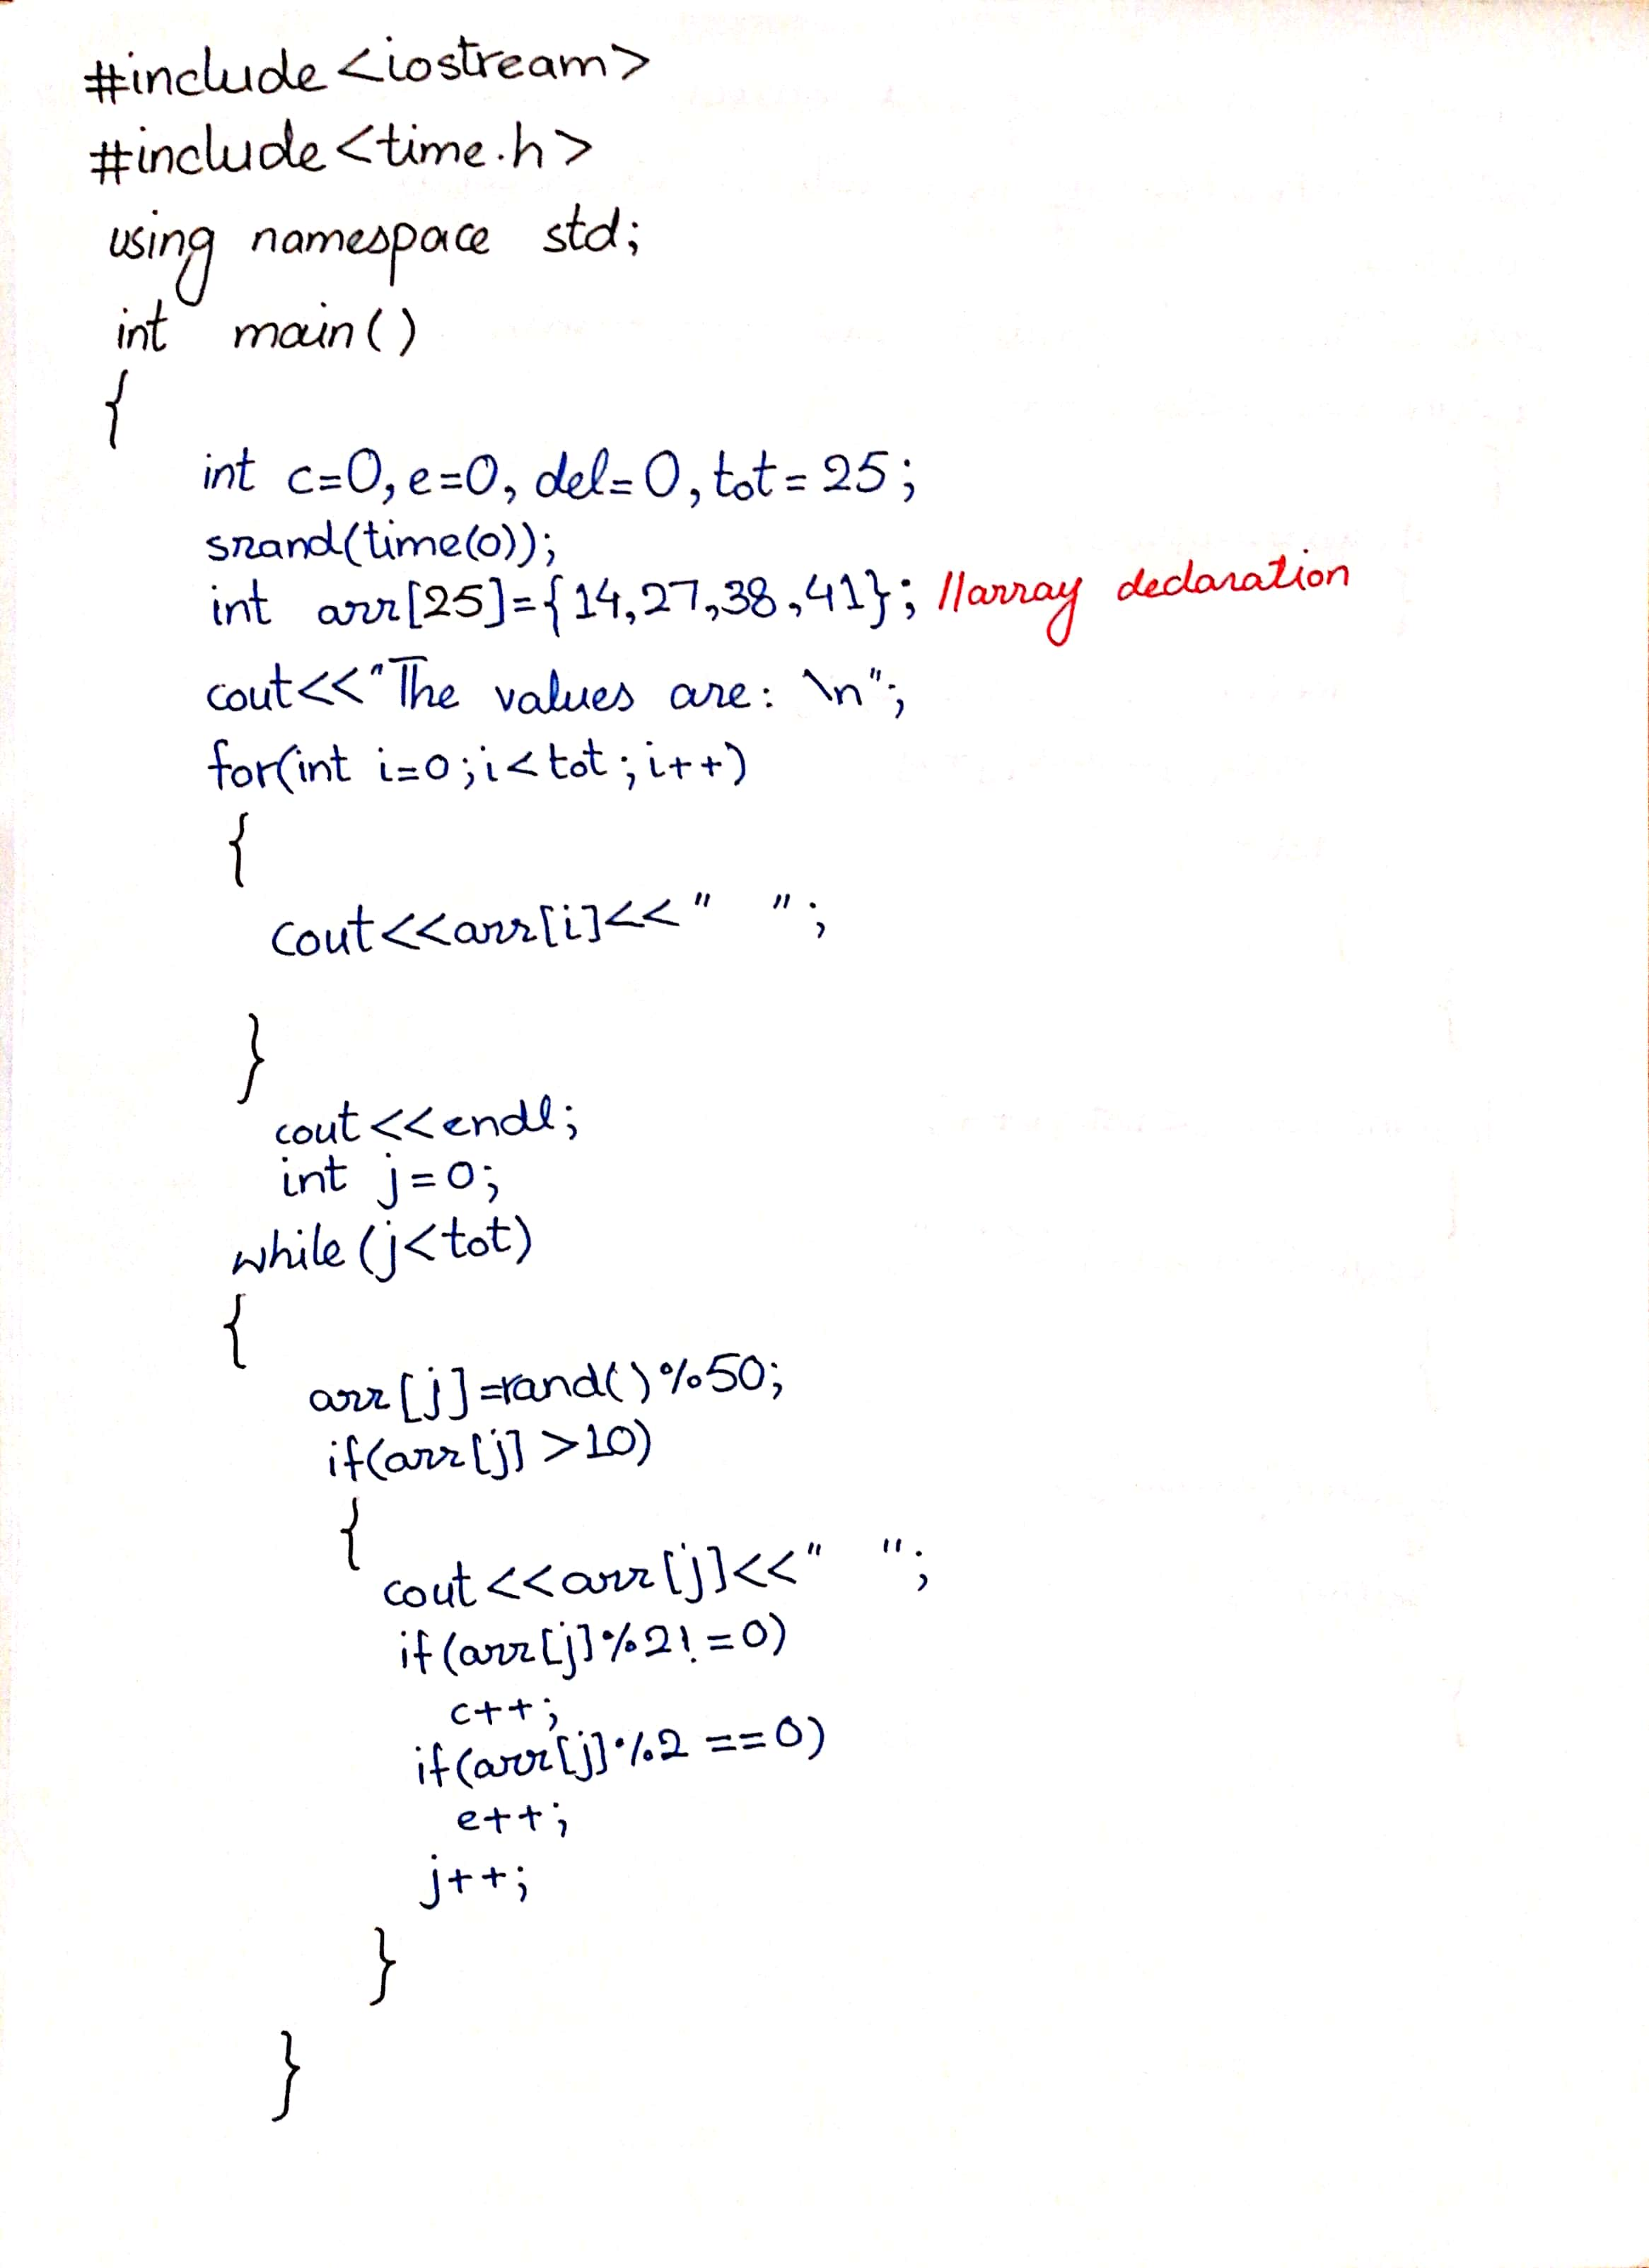 #include <iostream>
#include <time.h>
using namespace std;
int main()
{
int c=0, e=0, del=0, tot=25;
srand(time(0));
int arr[25]={14,27,38,41}; //array declaration
cout<<"The values are: \n";
for(int i=0;i<tot;i++)
{
cout<<arr[i]<<" ";
}
cout<<endl;
int j=0;
while(j<tot)
{
arr[j]=rand()%50;
if(arr[j]>10)
{
cout<<arr[j]<<" ";
if(arr[j]%2!=0)
c++;
if(arr[j]%2==0)
e++;
j++;
}
}